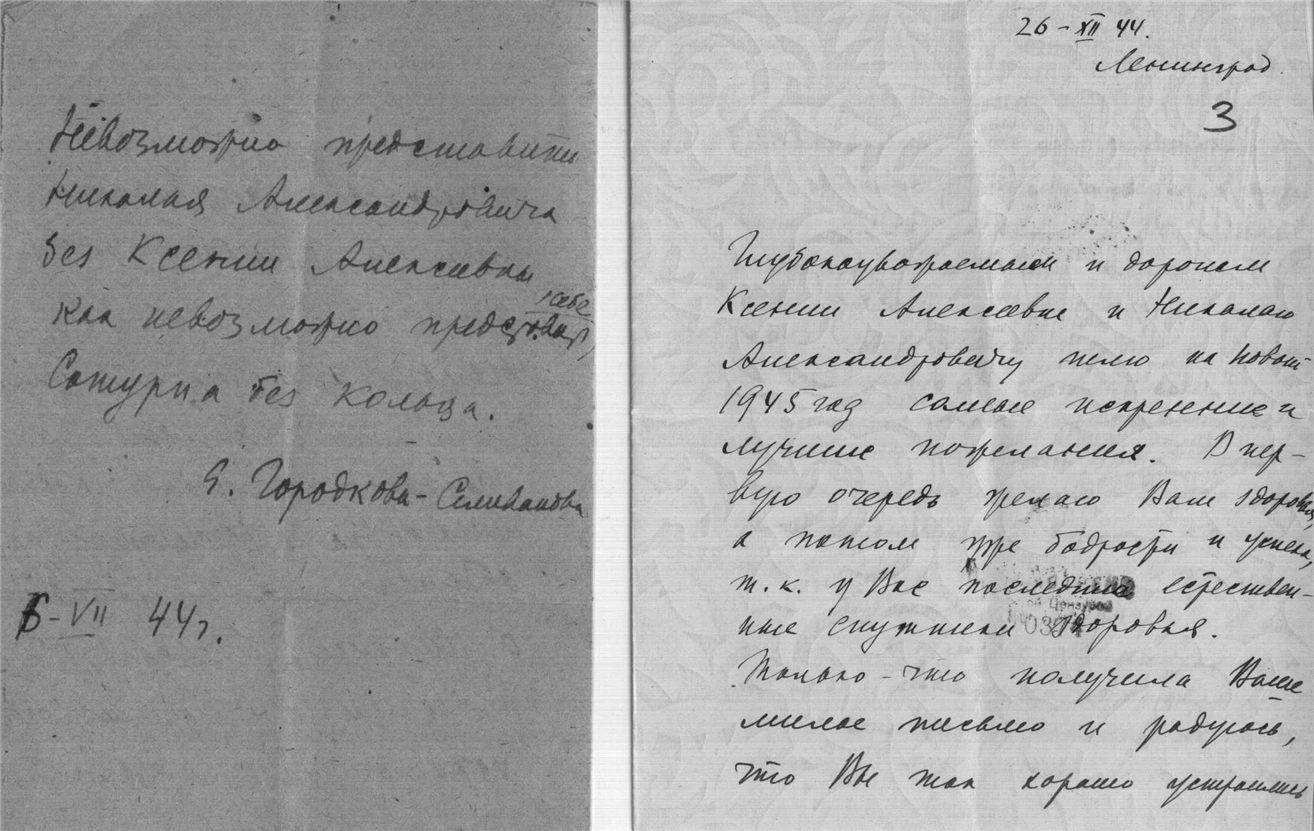 Невозможно представить
Николая Александровича
без Ксении Алексеевны
как невозможно представить
себе
Сатурна без кольца.
Е. Городкова-Селиванова
6-VII 44г.
26-XII 44.
Ленинград
3
Глубокоуважаемым и дорогим
Ксении Алексеевне и Николаю
Александровичу шлю на новый
1945 год самые искренние и
лучшие пожелания. В пер-
вую очередь желаю Вам здоровья,
а потом уже бодрости и успеха,
т.к. у Вас последние естествен-
ные спутники здоровья.
Только-что получила Ваше
милое письмо и радуюсь,
что Вы так хорошо устроились